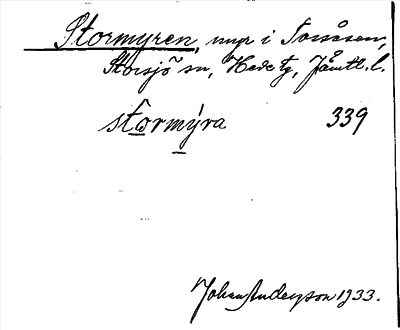 Stormyren, myr i Torsåsen,
Storsjö sn, Hede tg, Jämtl. l.
stormýra 339
Johan Anderson 1933.